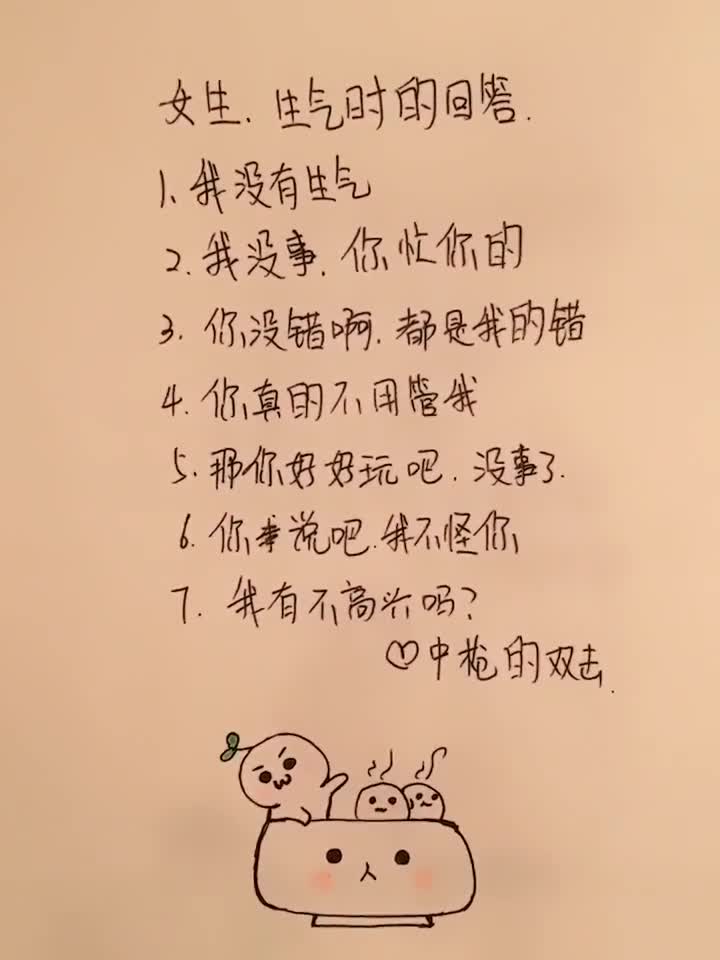 女生.生气时的回答.
1.我没有生气
2.我没事.你忙你的
3.你没错啊.都是我的错
4.你真的不用管我
5.那你好好玩吧.没事了.
6.你来说吧.我不怪你
7.我有不高兴吗?
♡中枪的双击.